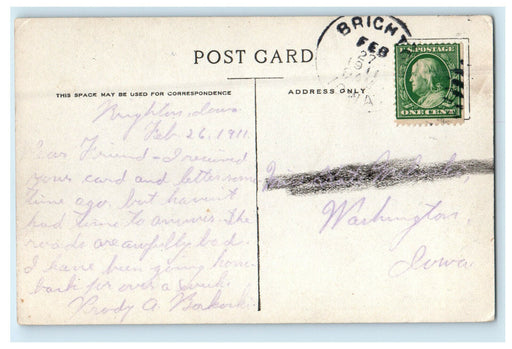 POST CARD
THIS SPACE MAY BE USED FOR CORRESPONDENCE
ADDRESS ONLY
BRIGHT
FEB
27
1911
IOWA
U.S. POSTAGE
ONE CENT
Brighton, Iowa
Feb 26, 1911.
Dear Friend - I received
your card and letter some
time ago, but haven't
had time to answer. The
roads are awfully bad.
I have been going home
back for over a week.
A.
Washington,
Iowa.